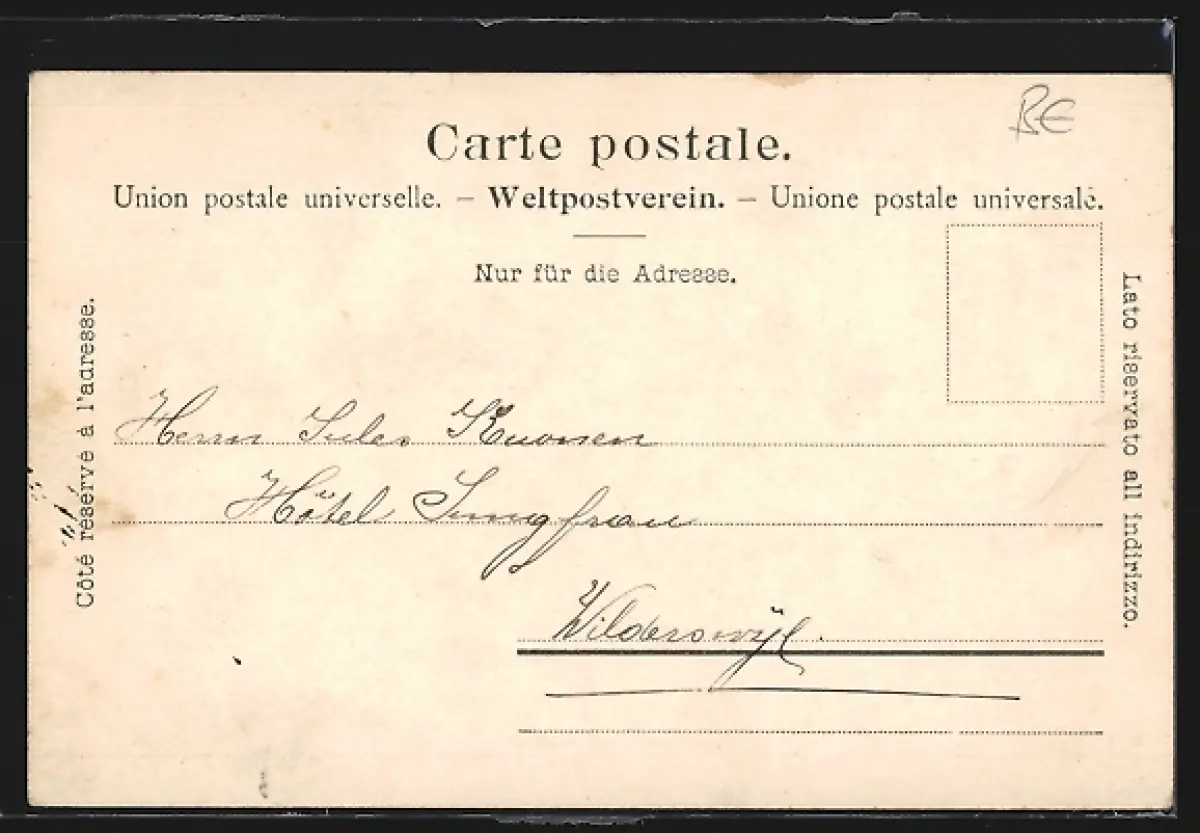 BE
Carte postale.
Union postale universelle. – Weltpostverein. – Unione postale universale.
Nur für die Adresse.
Côté réservé à l'adresse.
Lato riservato all indirizzo.
Herrn Jules Kuonen
Hôtel Jungfrau
Wilderswÿl.